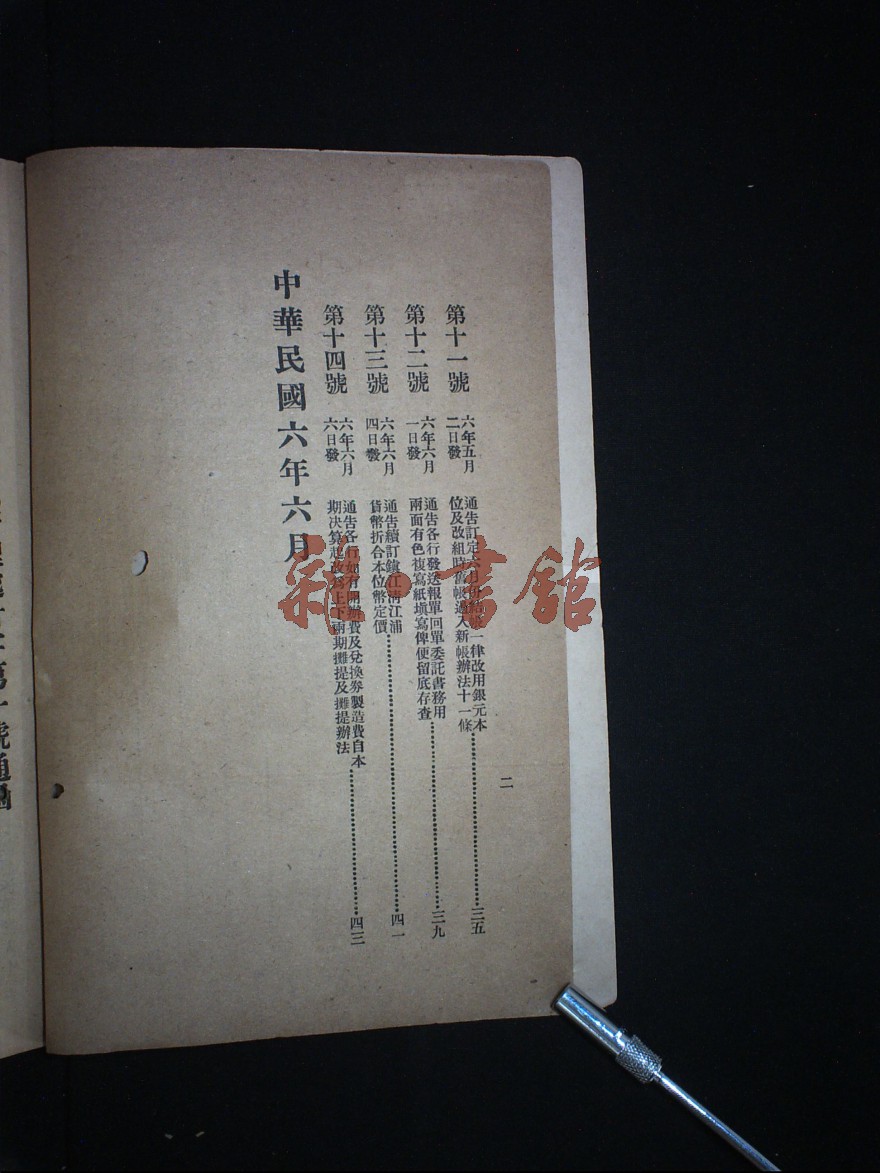 第十一號
六年五月
二日發
通告訂定六月份結帳一律改用銀元本
位及改組時舊帳過入新帳辦法十一條
三五
第十二號
六年六月
一日發
通告各行發送報單回單委託書務用
兩面有色複寫紙塡寫俾便留底存查
三九
第十三號
六年六月
四日發
通告續訂鎭江淸江浦
貨幣折合本位幣定價
四一
第十四號
六年六月
六日發
通告各行如有開辦費及兌換劵製造費自本
期决算起改爲上下兩期攤提及攤提辦法
四三
中華民國六年六月
二
書館
第 號通函